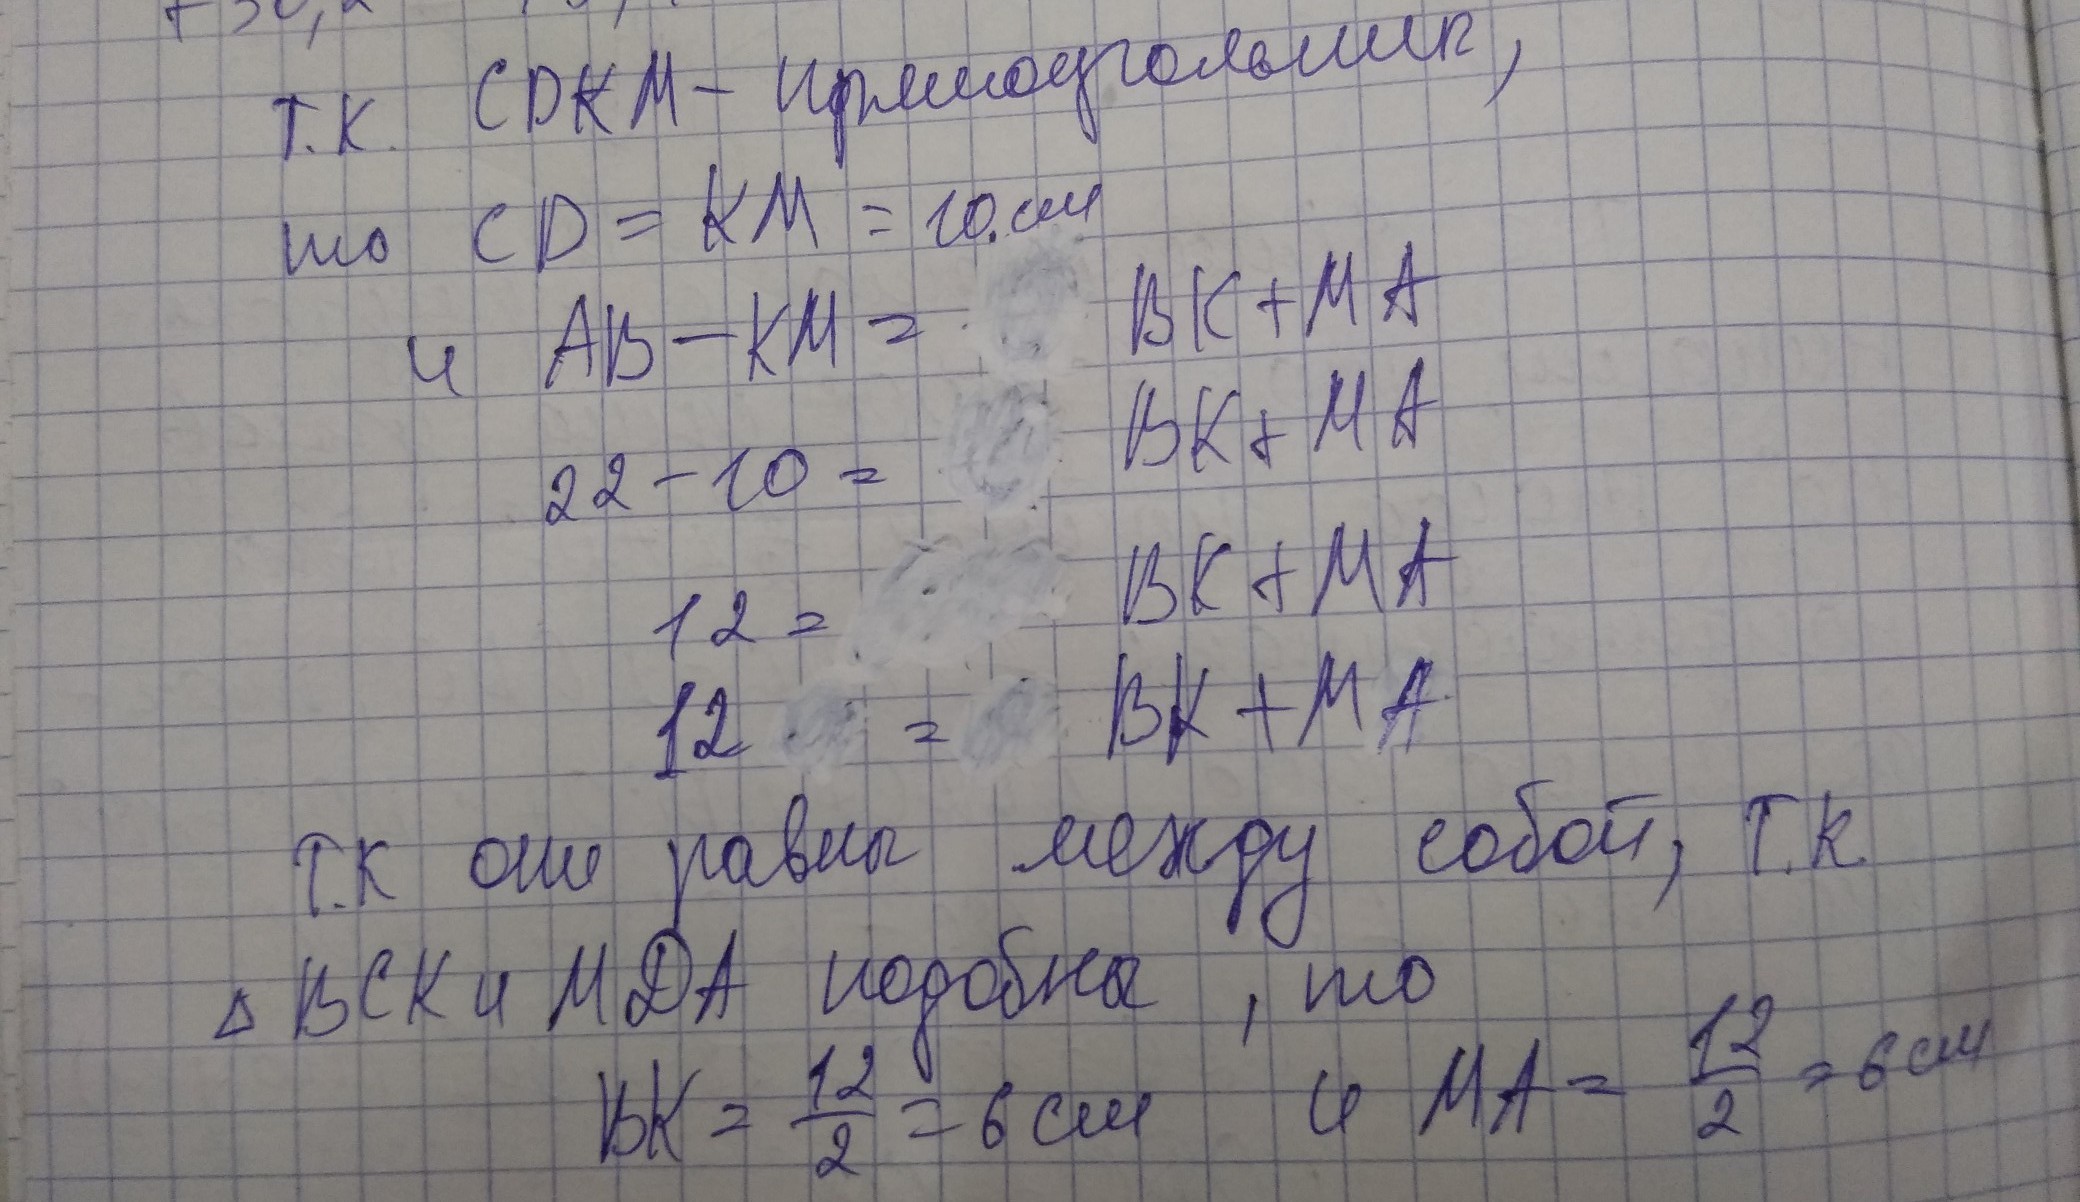 т.к. CDKM - прямоугольник,
то CD = KM = 10.см
и AB - KM = BK + MA
22 - 10 = BK + MA
12 = BK + MA
12 = BK + MA
т.к они равны между собой, т.к
△ BCK и MDA подобны, то
BK = 12/2 = 6 см и MA = 12/2 = 6 см